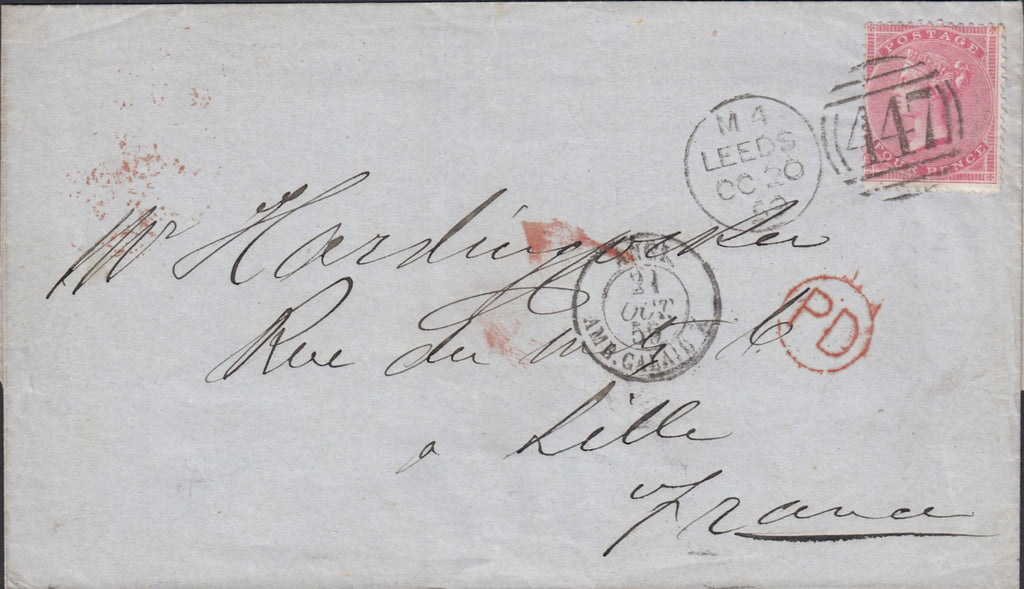 POSTAGE
FOUR PENCE
447
M 4
LEEDS
OC 20
Mr
ANGL.
21
OCT.
AMB. CALAIS
PD
Rue du
à Lille
France